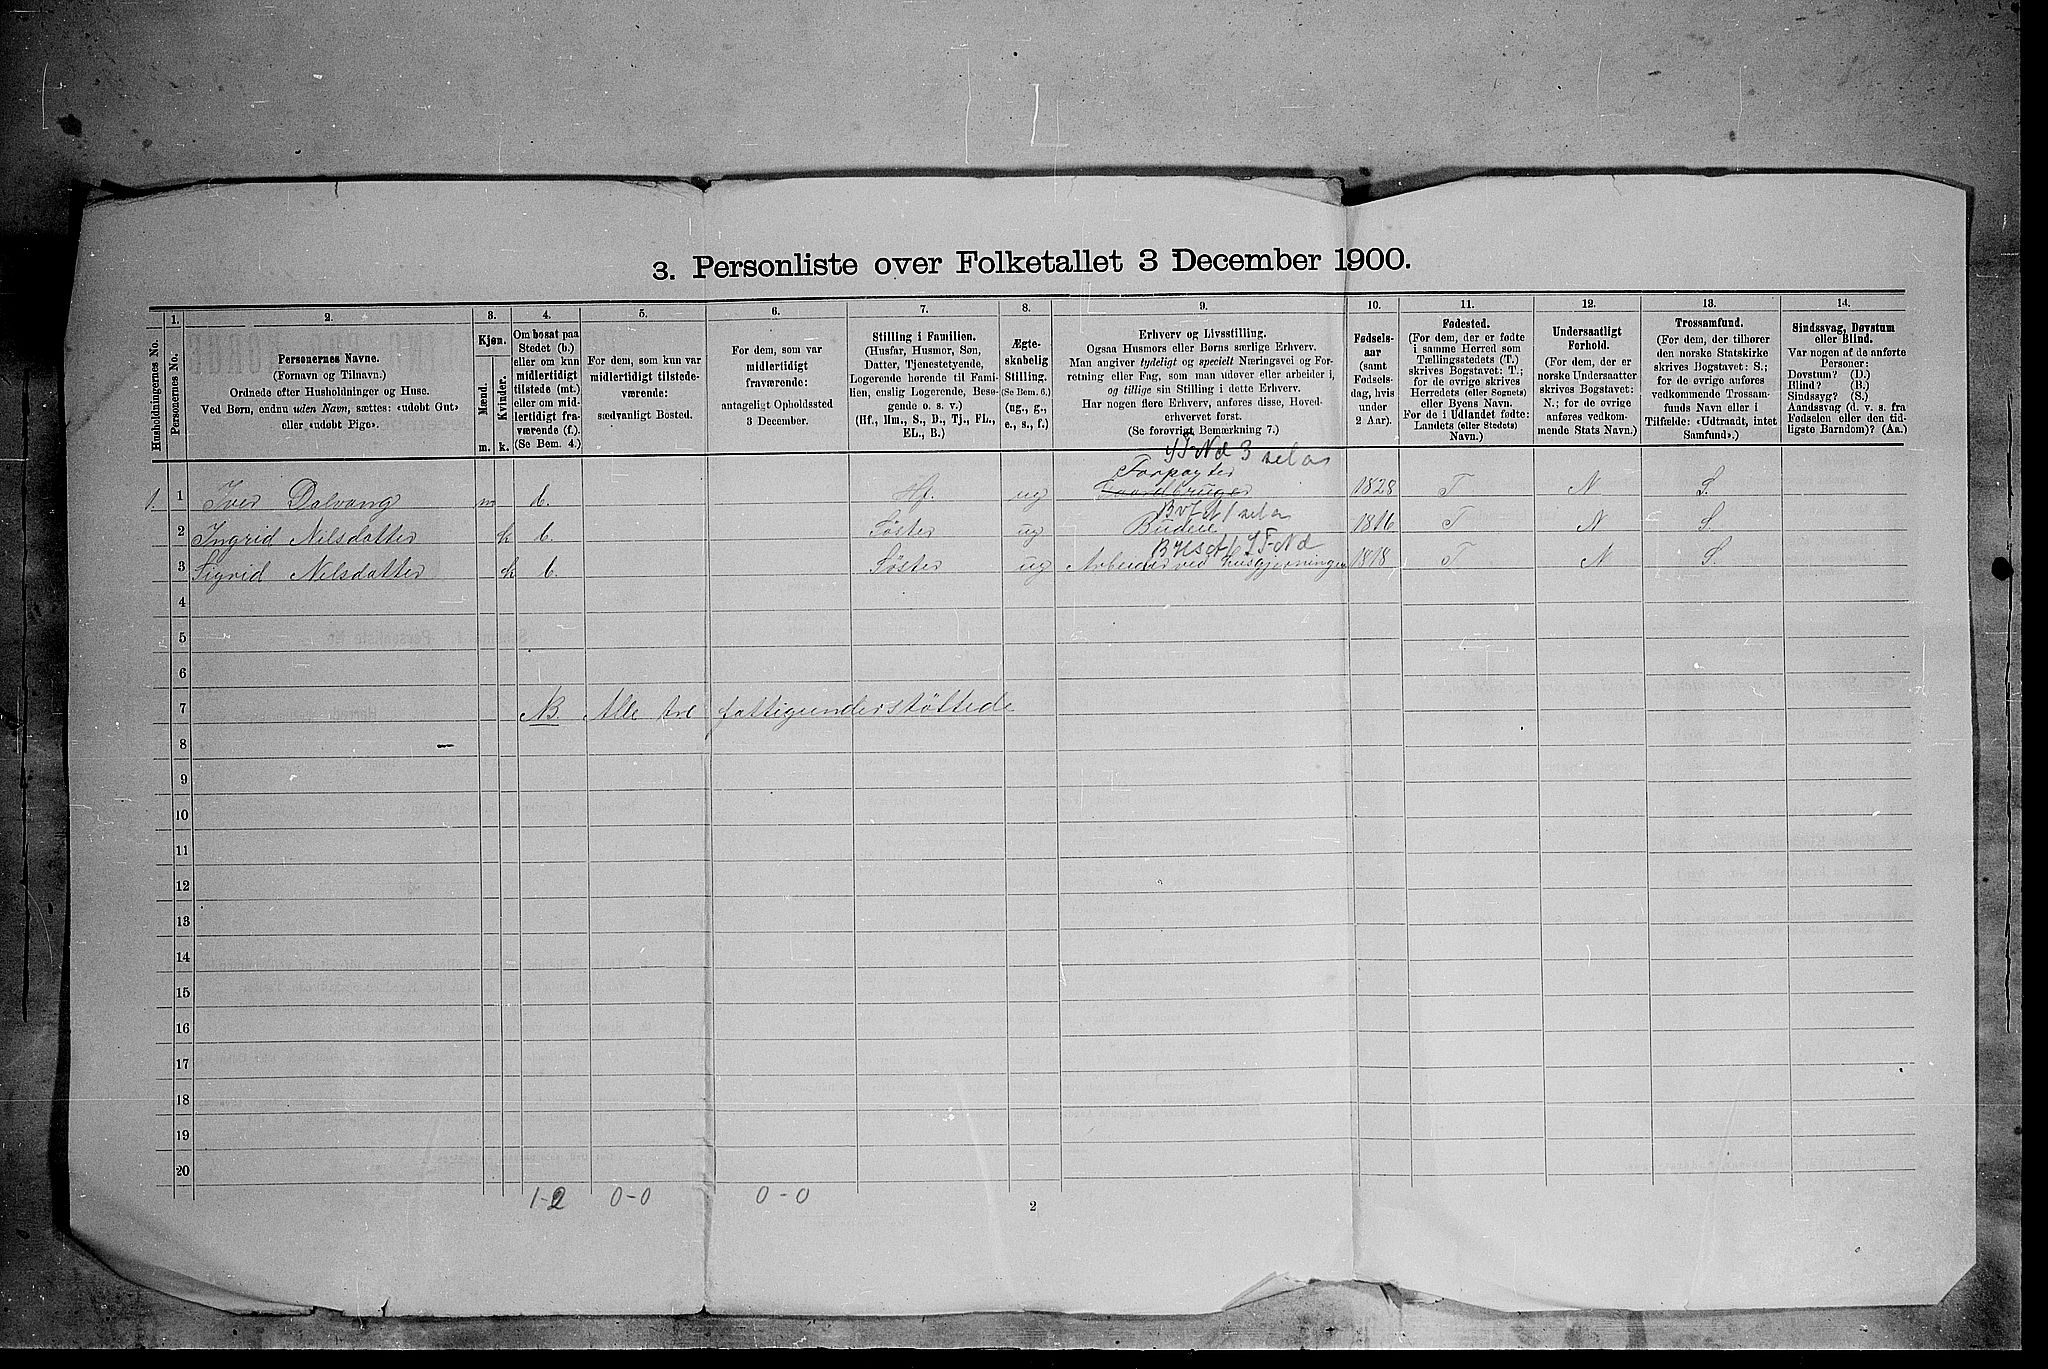 3. Personliste over Folketallet 3 December 1900.
Husholdningernes No.
1.
Personernes No.
2.
Personernes Navne.
(Fornavn og Tilnavn.)
Ordnede efter Husholdninger og Huse.
Ved Børn, endnu uden Navn, sættes: «udøbt Gut»
eller «udøbt Pige».
3.
Kjøn.
Mænd.
Kvinder.
m.
k.
4.
Om bosat paa
Stedet (b.)
eller om kun
midlertidigt
tilstede (mt.)
eller om mid-
lertidigt fra-
værende (f.).
(Se Bem. 4.)
5.
For dem, som kun var
midlertidigt tilstede-
værende:
sædvanligt Bosted.
6.
For dem, som var
midlertidigt
fraværende:
antageligt Opholdssted
3 December.
7.
Stilling i Familien.
(Husfar, Husmor, Søn,
Datter, Tjenestetyende,
Logerende hørende til Fami-
lien, enslig Logerende, Besø-
gende o. s. v.)
(Hf., Hm., S., D., Tj., FL.,
EL., B.)
8.
Ægte-
skabelig
Stilling.
(Se Bem. 6.)
(ug., g.,
e., s., f.)
9.
Erhverv og Livsstilling.
Ogsaa Husmors eller Børns særlige Erhverv.
Man angiver tydeligt og specielt Næringsvei og For-
retning eller Fag, som man udøver eller arbeider i,
og tillige sin Stilling i dette Erhverv.
Har nogen flere Erhverv, anføres disse, Hoved-
erhvervet først.
(Se forøvrigt Bemærkning 7.)
10.
Fødsels-
aar
(samt
Fødsels-
dag, hvis
under
2 Aar).
11.
Fødested.
(For dem, der er fødte
i samme Herred som
Tællingsstedets (T.)
skrives Bogstavet: T.;
for de øvrige skrives
Herredets (eller Sognets)
eller Byens Navn.
For de i Udlandet fødte:
Landets (eller Stedets)
Navn.)
12.
Undersaatligt
Forhold.
(For dem, der er
norske Undersaatter
skrives Bogstavet:
N.; for de øvrige
anføres vedkom-
mende Stats Navn.)
13.
Trossamfund.
(For dem, der tilhører
den norske Statskirke
skrives Bogstavet: S.;
for de øvrige anføres
vedkommende Trossam-
funds Navn eller i
Tilfælde: «Udtraadt, intet
Samfund».)
14.
Sindssvag, Døvstum
eller Blind.
Var nogen af de anførte
Personer:
Døvstum? (D.)
Blind? (B.)
Sindssyg? (S.)
Aandssvag (d. v. s. fra
Fødselen eller den tid-
ligste Barndom)? (Aa.)
1. 1 Iver Dalvang m b. Hf. ug Forpagter Gaardbruger 1828 T N S.
2 Ingrid Nilsdatter k b. Søster ug Budeie 1816 T N S.
3 Sigrid Nilsdatter k b. Søster ug Arbeider ved husgjerningen 1818 T N S.
4
5
6
7 NB. Alle tre fattigunderstøttede
8
9
10
11
12
13
14
15
16
17
18
19
20
1-2 0-0 0-0
2